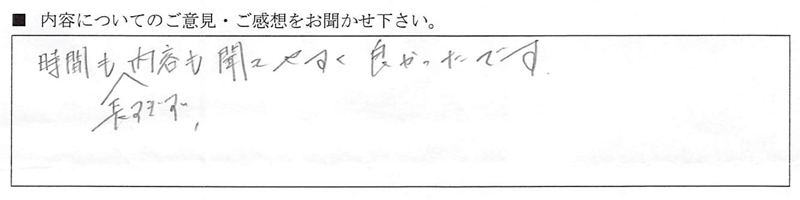 ■ 内容についてのご意見・ご感想をお聞かせ下さい。
時間も内容も聞きやすく良かったです.
長すぎず,